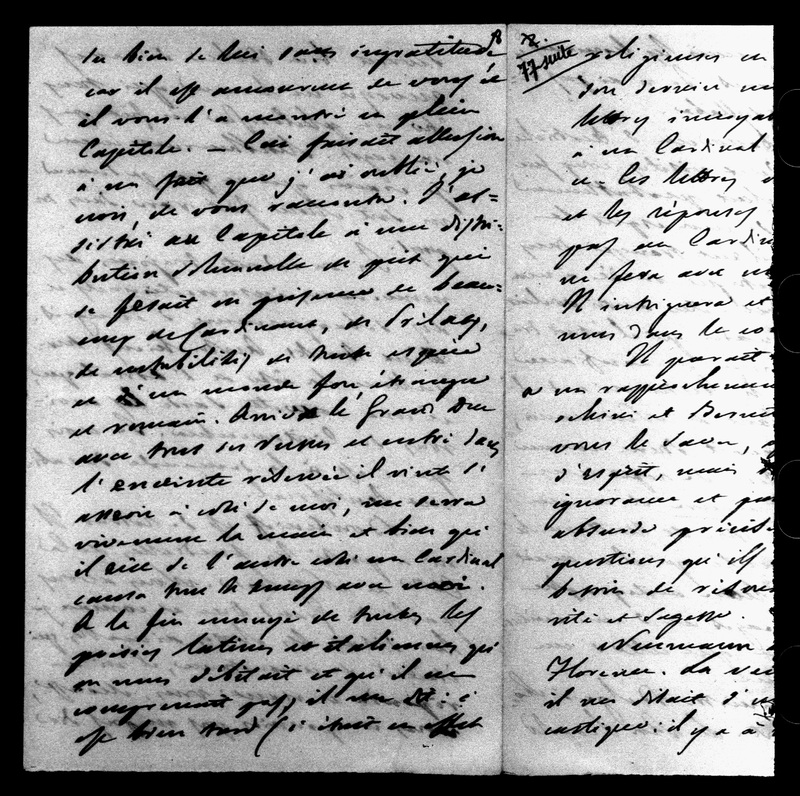 du bien de lui sans ingratitude
car il est amoureux de vous et
il vous l'a montré en plein
Capitole. — Ceci faisait allusion
à un fait que j'ai oublié, je
crois, de vous raconter. J'as-
sistai au Capitole à une distri-
bution solennelle de prix qui
se fesait en présence de beau-
coup de Cardinaux, de Prélats,
de notabilités de toute espèce
et d'un monde fou étranger
et romain. Arrive le Grand Duc
avec tous ses Russes et entré dans
l'enceinte réservée il vient s'
asseoir à côté de moi, me serra
vivement la main et bien qu'
il eût de l'autre côté un Cardinal
causa tout le temps avec moi.
A la fin ennuyé de toutes les
poésies latines et italiennes qu'
on nous débitait et qu'il ne
comprenait pas, il me dit: i
est bien tard (c'était en effet
8
78.
77 suite
religieuses en
don dernier
lettres incroyab
à un Cardinal
Ces lettres
et les réponses
pas au Cardin
ne fera
Il intriguera et
mais dans le
Il parait
un rapprochemen
et
vous le savez,
d'esprit, mais
ignorance et
absurde précisé
questions qu'ils
besoin de
rité et sagesse.
Neumann
Florence. La
il me disait d'
il y a à